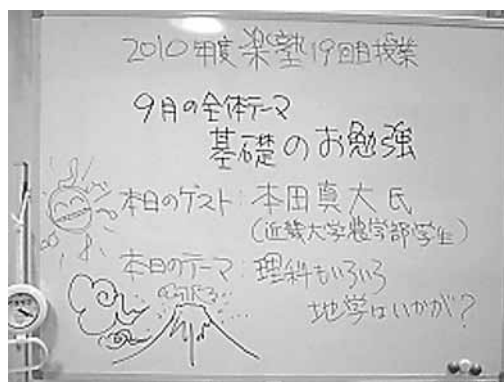 2010年度 楽塾 19回目授業
9月の全体テーマ
基礎のお勉強
本日のゲスト：本田真大氏
(近畿大学農学部学生)
本日のテーマ：理科もいろいろ
地学はいかが？